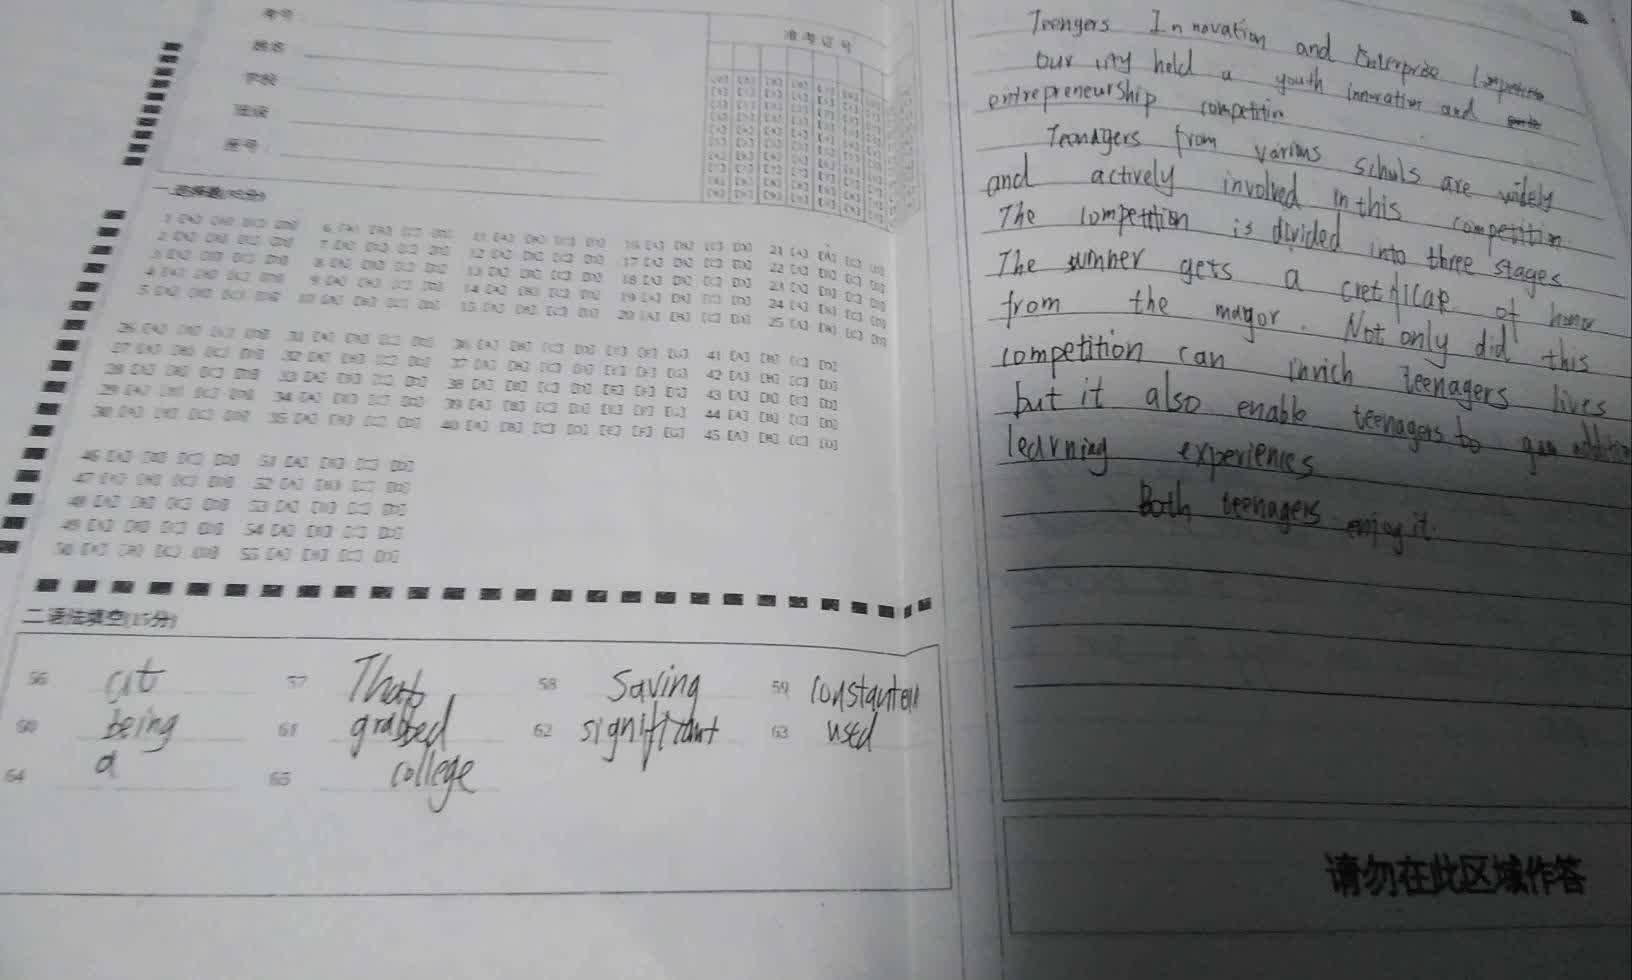 考号
姓名
学校
班级
座号
准考证号
一.选择题(85分)
1 [A] [B] [C] [D] 6 [A] [B] [C] [D] 11 [A] [B] [C] [D] 16 [A] [B] [C] [D] 21 [A] [B] [C] [D]
2 [A] [B] [C] [D] 7 [A] [B] [C] [D] 12 [A] [B] [C] [D] 17 [A] [B] [C] [D] 22 [A] [B] [C] [D]
3 [A] [B] [C] [D] 8 [A] [B] [C] [D] 13 [A] [B] [C] [D] 18 [A] [B] [C] [D] 23 [A] [B] [C] [D]
4 [A] [B] [C] [D] 9 [A] [B] [C] [D] 14 [A] [B] [C] [D] 19 [A] [B] [C] [D] 24 [A] [B] [C] [D]
5 [A] [B] [C] [D] 10 [A] [B] [C] [D] 15 [A] [B] [C] [D] 20 [A] [B] [C] [D] 25 [A] [B] [C] [D]
26 [A] [B] [C] [D] 31 [A] [B] [C] [D] 36 [A] [B] [C] [D] [E] [F] [G] 41 [A] [B] [C] [D]
27 [A] [B] [C] [D] 32 [A] [B] [C] [D] 37 [A] [B] [C] [D] [E] [F] [G] 42 [A] [B] [C] [D]
28 [A] [B] [C] [D] 33 [A] [B] [C] [D] 38 [A] [B] [C] [D] [E] [F] [G] 43 [A] [B] [C] [D]
29 [A] [B] [C] [D] 34 [A] [B] [C] [D] 39 [A] [B] [C] [D] [E] [F] [G] 44 [A] [B] [C] [D]
30 [A] [B] [C] [D] 35 [A] [B] [C] [D] 40 [A] [B] [C] [D] [E] [F] [G] 45 [A] [B] [C] [D]
46 [A] [B] [C] [D] 51 [A] [B] [C] [D]
47 [A] [B] [C] [D] 52 [A] [B] [C] [D]
48 [A] [B] [C] [D] 53 [A] [B] [C] [D]
49 [A] [B] [C] [D] 54 [A] [B] [C] [D]
50 [A] [B] [C] [D] 55 [A] [B] [C] [D]
二.语法填空(15分)
56 at 57 58 Saving 59
60 being 61 grabbed 62 significant 63 used
64 a 65 college
Teengers Innovation and Enterprise
our city held a youth innovation and
entrepreneurship competition
Teenagers from various schools are widely
and actively involved in this competition.
The competition is divided into three stages
The winner gets a of honor
from the mayor. Not only did this
competition can inrich teenagers lives
but it also enable teenagers to gain
learning experiences
Both teenagers enjoy it.
请勿在此区域作答